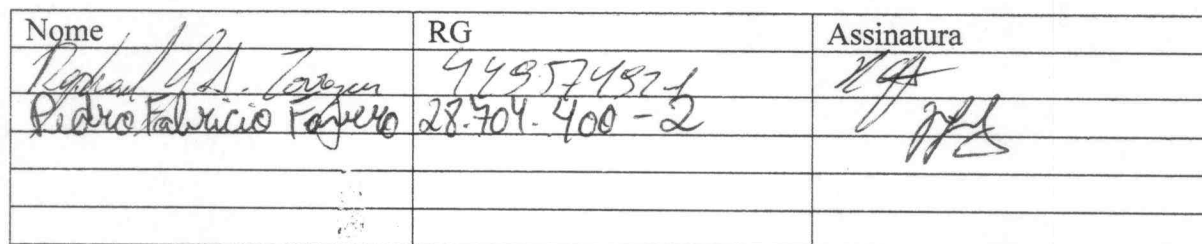 Nome RG Assinatura
Raphael 449574921
Pedro Fabricio Favero 28.704.400-2